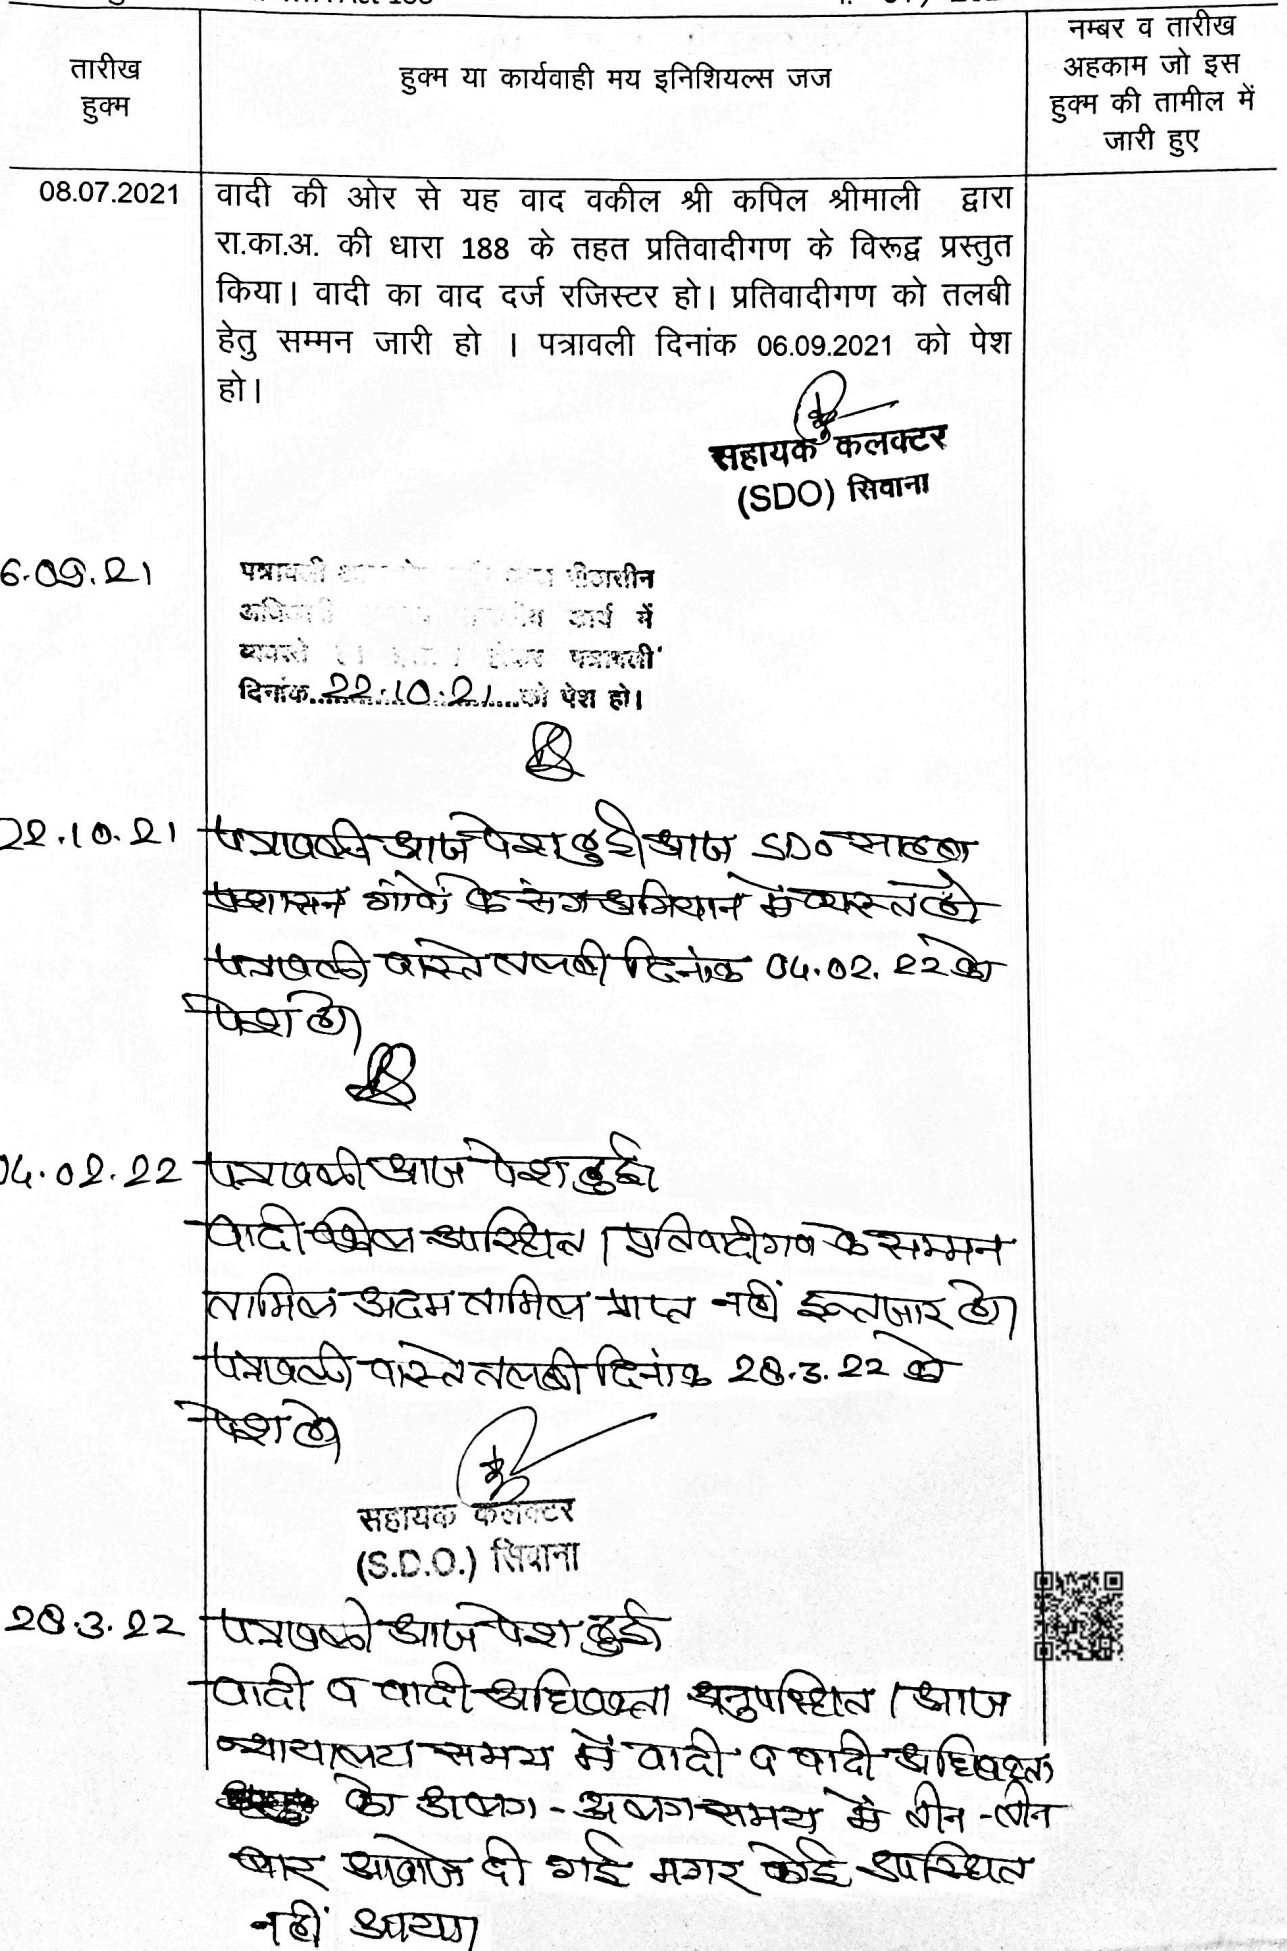 तारीख
हुक्म
हुक्म या कार्यवाही मय इनिशियल्स जज
नम्बर व तारीख
अहकाम जो इस
हुक्म की तामील में
जारी हुए
08.07.2021
वादी की ओर से यह वाद वकील श्री कपिल श्रीमाली द्वारा
रा.का.अ. की धारा 188 के तहत प्रतिवादीगण के विरूद्व प्रस्तुत
किया। वादी का वाद दर्ज रजिस्टर हो। प्रतिवादीगण को तलबी
हेतु सम्मन जारी हो । पत्रावली दिनांक 06.09.2021 को पेश
हो।
सहायक कलक्टर
(SDO) सिवाना
6.09.21
पत्रावली पीठासीन
अधिकारी कार्य में
पत्रावली
दिनांक 22.10.21 को पेश हो।
22.10.21 पत्रावली आज पेश हुई आज SDO साहब
प्रशासन गांवों के संग अभियान में व्यस्त हो
पत्रावली वास्ते तलबी दिनांक 04.02.22 को
पेश हो।
04.02.22 पत्रावली आज पेश हुई।
वादी उपस्थित। प्रतिवादीगण के सम्मन
तामिल अदम तामिल प्राप्त नहीं इन्तजार हो।
पत्रावली वास्ते तलबी दिनांक 28.3.22 को
पेश हो।
सहायक कलक्टर
(S.D.O.) सिवाना
28.3.22 पत्रावली आज पेश हुई।
वादी व वादी अधिवक्ता अनुपस्थित। आज
न्यायालय समय में वादी व वादी अधिवक्ता
को अलग-अलग समय में तीन-तीन
बार आवाजे दी गई मगर कोई उपस्थित
नहीं आया।